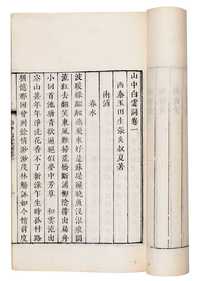 山中白雲詞卷一
西秦玉田生張炎叔夏著
南浦
春水
波暖綠粼粼燕飛來好是蘇堤纔曉魚沒浪痕圓
流紅去翻笑東風難掃荒橋斷浦柳陰撐出扁舟
小回首池塘青欲遍絕似夢中芳草 和雲流出
空山甚年年淨洗花香不了新淥乍生時孤村路
猶憶那回曾到餘情渺渺茂林觴詠如今悄前度